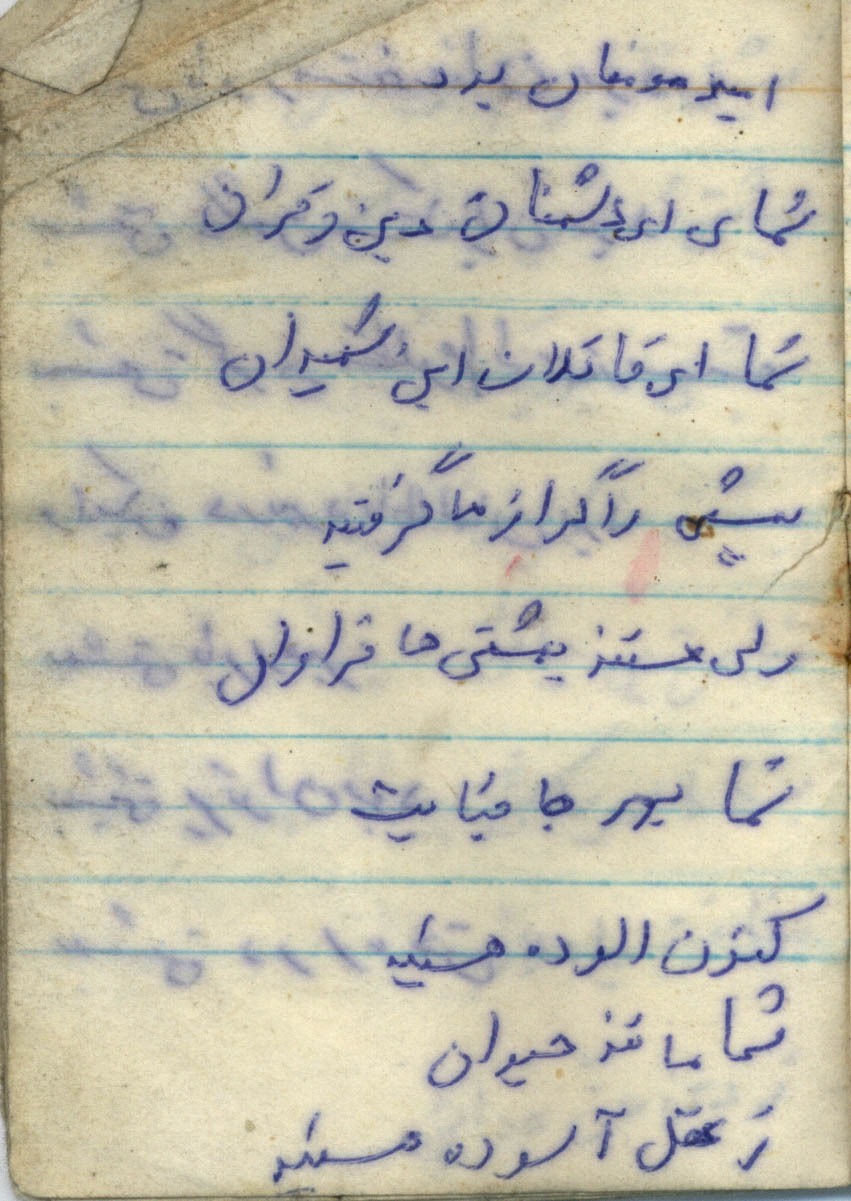 امید مومنان بود
شمای ای دشمنان دین و قران
شما ای قاتلان این شهیدان
بهشتی را گر از ما گرفتید
ولی هستند بهشتی ها فراوان
شما بهر جنایت
کنون الوده هستید
شما مانند حیوان
ز عقل آسوده هستید